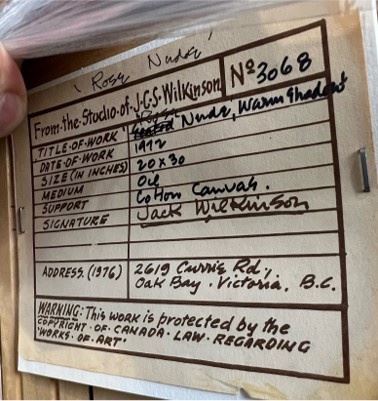 'Rose Nude'
From·the·Studio·of·J·C·S·Wilkinson Nº 3068
TITLE·OF·WORK "Rose Nude, Warm Shadows
DATE·OF·WORK 1972
SIZE (IN INCHES) 20 x 30
MEDIUM Oil
SUPPORT Cotton Canvas.
SIGNATURE Jack Wilkinson
ADDRESS. (1976) 2619 Currie Rd,
Oak Bay · Victoria, B.C.
WARNING: This work is protected by the
COPYRIGHT · OF · CANADA · LAW · REGARDING
'WORKS · OF · ART'